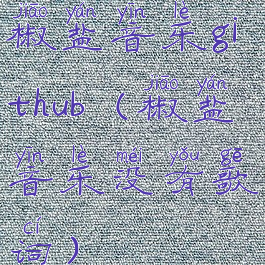 jiāo yán yīn lè
椒盐音乐gi
jiāo yán
thub（椒盐
yīn lè méi yǒu gē
音乐没有歌
cí
词）